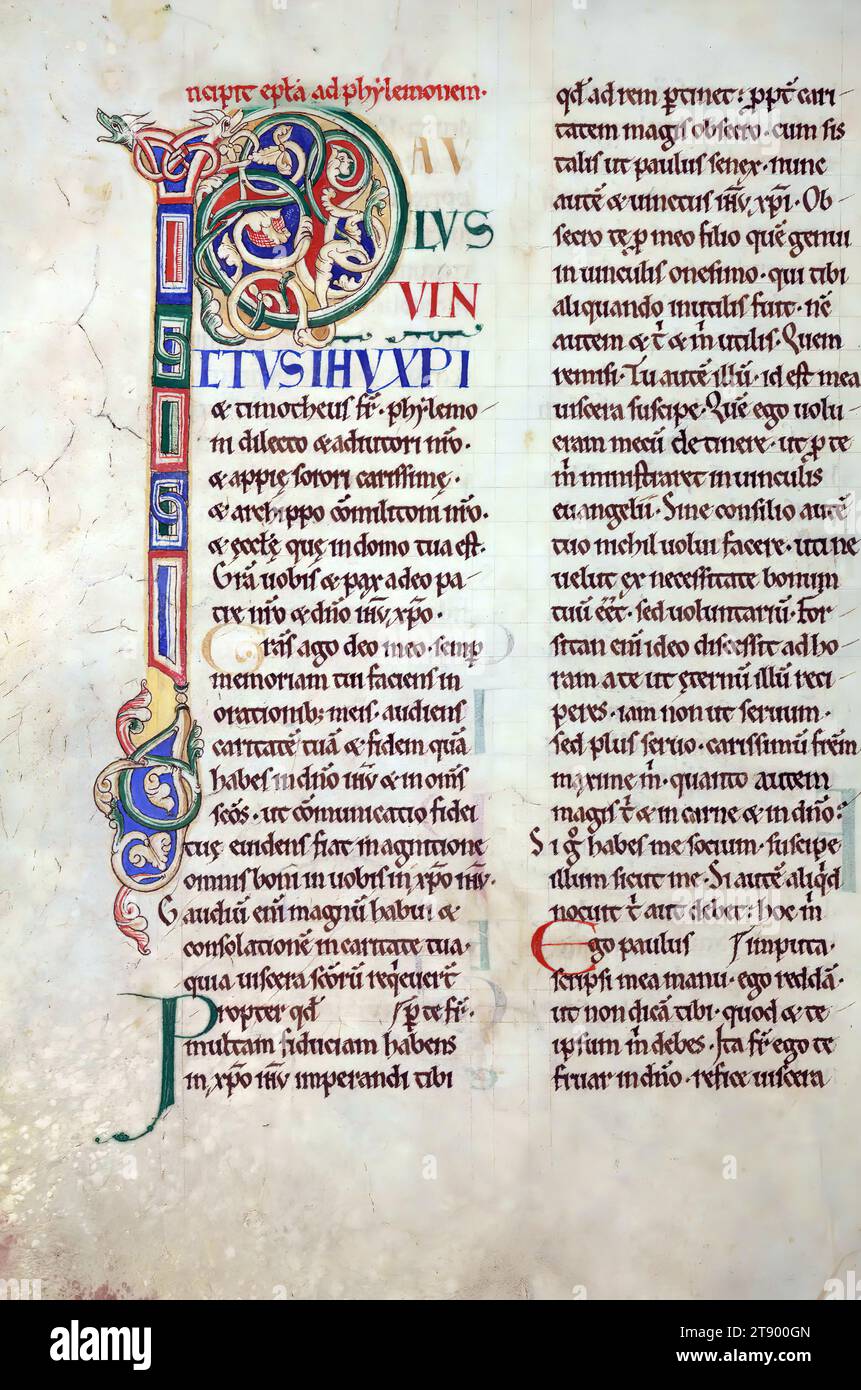 ncipit epła ad phylemonem·
PAV
LVS
VIN
CTVS IHV XPI
& timotheus fr̄· phylemo
ni dilecto & adiutori nr̄o·
& appię sorori carissimę·
& archippo cōmilitoni nr̄o·
& ęcclę quę in domo tua est·
Gr̄a uobis & pax a deo pa
tre nr̄o & dn̄o ihū xp̄o·
Gratias ago deo meo· semp
memoriam tui faciens in
orationib; meis· audiens
caritatē tuā & fidem quā
habes in dn̄o ihū & in om̄s
sc̄os· ut cōmunicatio fidei
tuę euidens fiat in agnitione
omnis boni in uobis in xp̄o ihū·
Gaudiū enī magnū habui &
consolationē in caritate tua·
quia uiscera sc̄orū reqeuert̄
Propter qd̄ p te fr̄·
multam fiduciam habens
in xp̄o ihū imperandi tibi
qd̄ ad rem p̱tinet: p̱pt̄ cari
tatem magis obsecro· cum sis
talis ut paulus senex· nunc
autē & uinctus ihū xp̄i· Ob
secro te p̱ meo filio quē genui
in uinculis onesimo· qui tibi
aliquando inutilis fuit· nc̄
autem & t̄ & m̄ utilis· Quem
remisi· Tu autē illū· id est mea
uiscera suscipe· Quē ego uolu
eram mecū detinere· ut p̱ te
m̄ ministraret in uinculis
euangelii· Sine consilio autē
tuo nichil uolui facere· uti ne
uelut ex necessitate bonum
tuū eēt· sed uoluntariū· For
sitan enī ideo discessit ad ho
ram a te ut ęternū illū reci
peres· iam non ut seruum·
sed plus seruo· carissimū frēm
maxime m̄· quanto autem
magis t̄ & in carne & in dn̄o:
Si g̊ habes me socium· suscipe
illum sicut me· Si autē aliqd
nocuit t̄ aut debet: hoc m̄
Ego paulus imputa·
scripsi mea manu· ego reddā·
ut non dicā tibi· quod & te
ipsum m̄ debes· Ita fr̄ ego te
fruar in dn̄o· refice uiscera
alamy
Image ID: 2T900GN
www.alamy.com